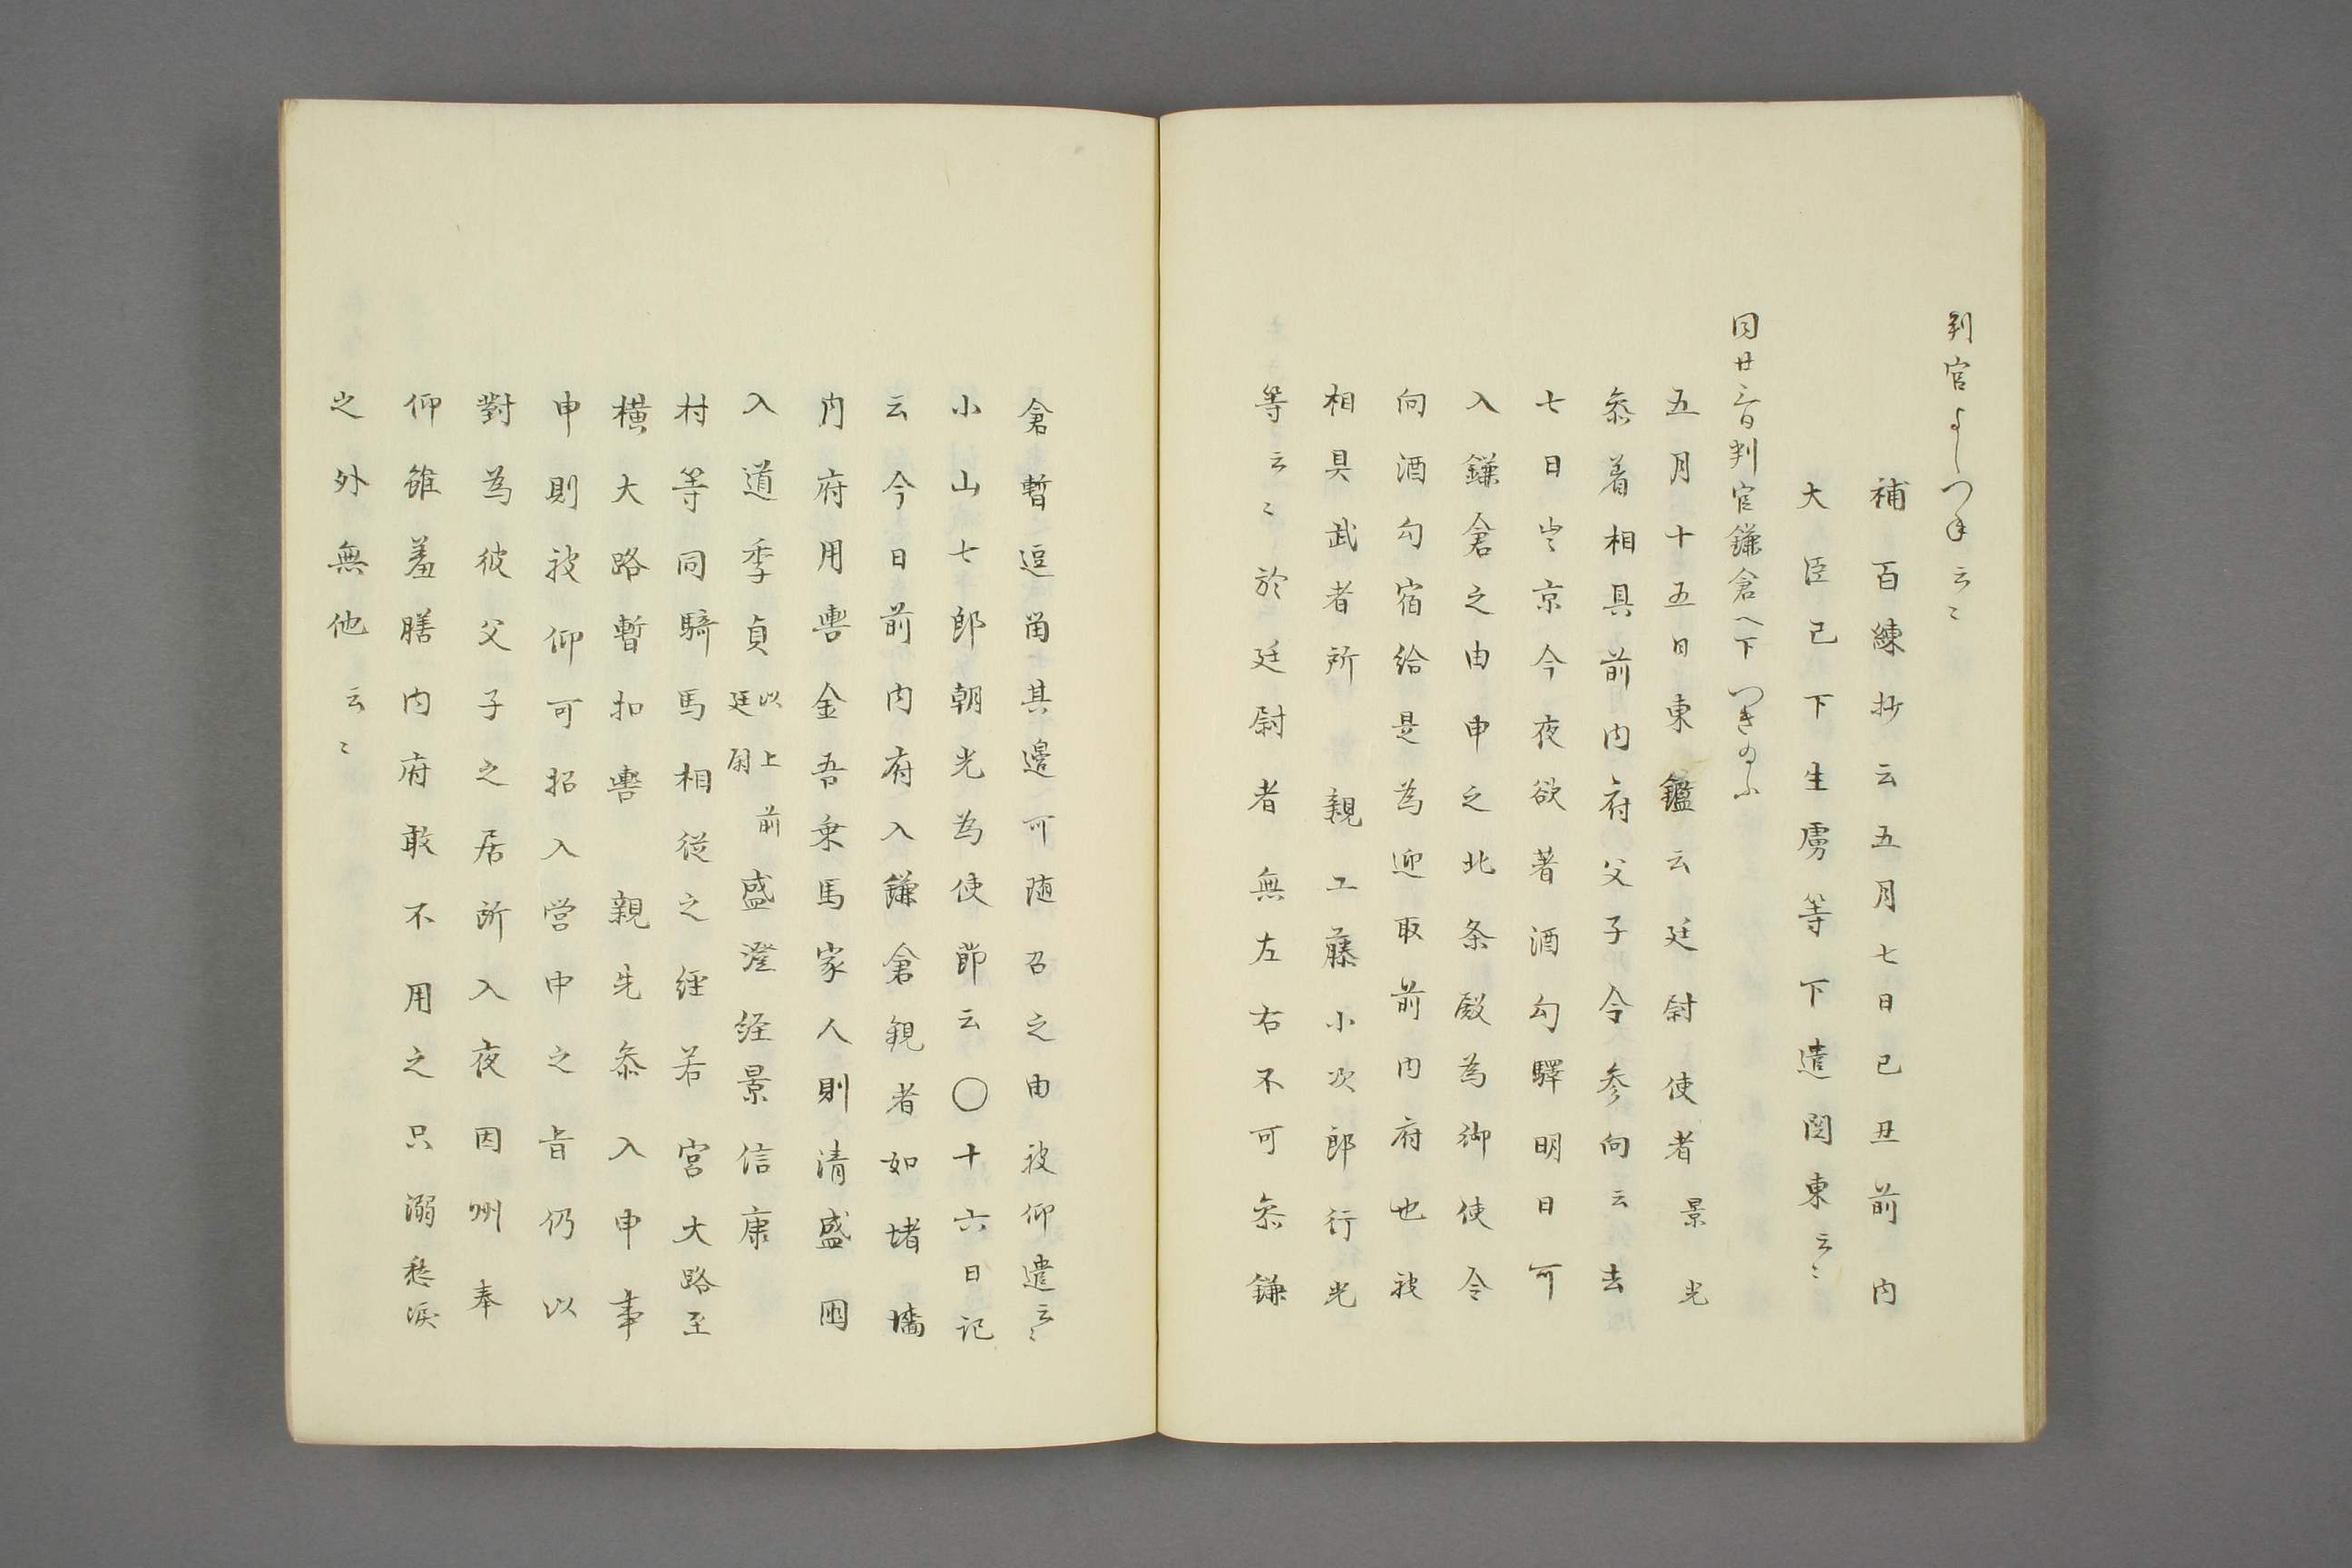 判官よしつね云〻
補百練抄云五月七日己丑前内
大臣已下生虜等下遣関東云〻
同廿三日判官鎌倉へ下つきのふ
五月十五日東鑑云廷尉使者景光
参着相具前内府父子令参向云去
七日出京今夜欲著酒勾驛明日可
入鎌倉之由申之北条殿為御使令
向酒勾宿給是為迎取前内府也被
相具武者所 親工藤小次郎行光
等云〻於廷尉者無左右不可参鎌
倉暫逗留其邊可随召之由被仰遣云〻
小山七郎朝光為使節云〇十六日記
云今日前内府入鎌倉観者如堵墻
内府用輿金吾乗馬家人則清盛国
入道季貞以上前廷尉盛澄経景信康
村等同騎馬相従之経若宮大路至
横大路暫扣輿 親先参入申事
申則被仰可招入営中之旨仍以
對為彼父子之居所入夜因州奉
仰雖羞膳内府敢不用之只溺愁涙
之外無他云〻